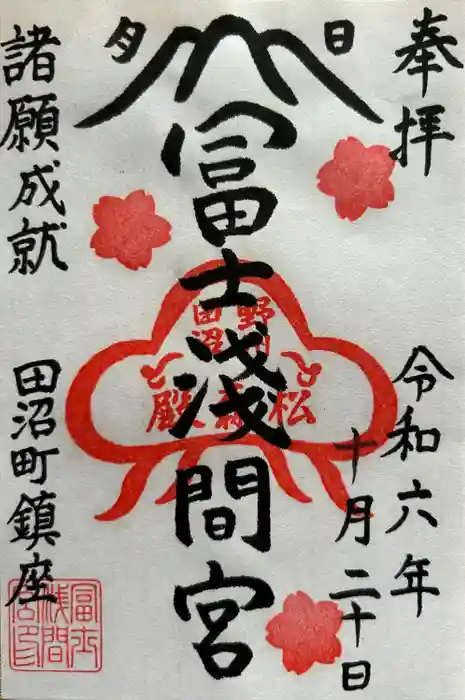 奉拝
令和六年
十月二十日
日
夕
冨士浅間宮
野州
田沼
松森殿
諸願成就
田沼町鎮座
冨士
浅間
宮印